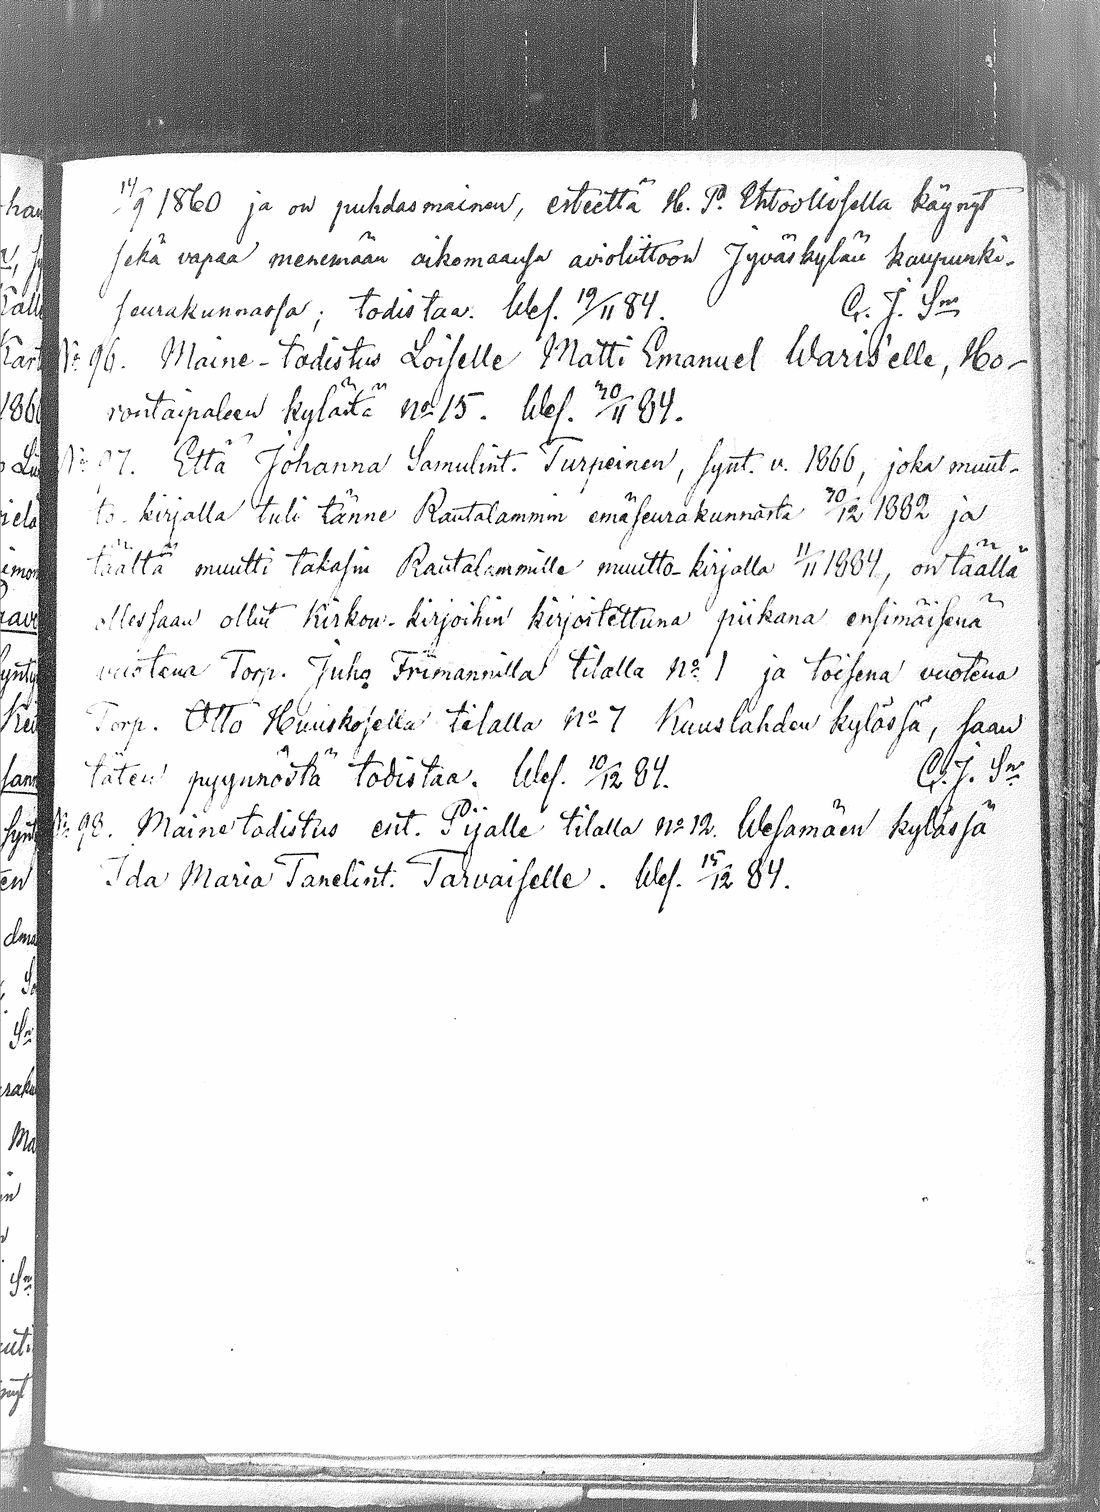 14/9 1860 ja on puhdasmainen, esteettä H. P. Ehtoollisella käynyt
sekä vapaa menemään aikomaansa avioliittoon Jyväskylän kaupunki-
seurakunnassa; todistaa. Wes. 19/11 84. G. J. Sm
No 96. Maine-todistus Loiselle Matti Emanuel Waris'elle, Ho-
rontaipaleen kylästä No 15. Wes. 30/11 84.
No 97. Että Johanna Samulint. Turpeinen, synt. v. 1866, joka muut-
to-kirjalla tuli tänne Rautalammin emäseurakunnasta 30/12 1882 ja
täältä muutti takasin Rautalammille muutto-kirjalla 11/11 1884, on täällä
ollessaan ollut Kirkon-kirjoihin kirjoitettuna piikana ensimäisenä
vuotena Torp. Juho Frimannilla tilalla No 1 ja toisena vuotena
Torp. Otto Huuskosella tilalla No 7 Kuuslahden kylässä, saan
täten pyynnöstä todistaa. Wes. 10/12 84. G. J. Sm
No 98. Mainetodistus ent. Pijalle tilalla No 12. Wesamäen kylässä
Ida Maria Tanelint. Tarvaiselle. Wes. 15/12 84.